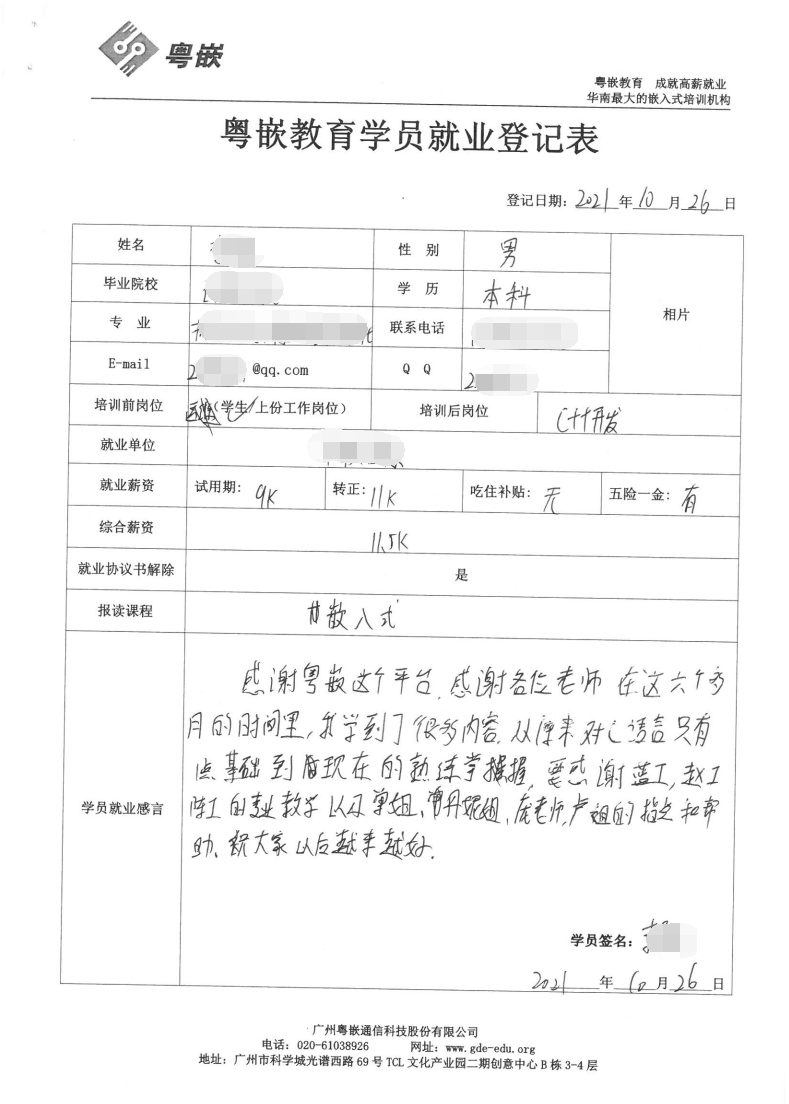 粤嵌
粤嵌教育 成就高薪就业
华南最大的嵌入式培训机构
粤嵌教育学员就业登记表
登记日期：2021年10月26日
姓名 性 别 男 相片
毕业院校 学 历 本科
专 业 联系电话
E-mail 2 @qq.com Q Q 2
培训前岗位 (学生/上份工作岗位) 培训后岗位 C++开发
就业单位
就业薪资 试用期：9K 转正：11K 吃住补贴：无 五险一金：有
综合薪资 11.5K
就业协议书解除 是
报读课程 嵌入式
学员就业感言
感谢粤嵌这个平台，感谢各位老师 在这六个多
月的时间里，我学到了很多内容，从原来对C语言只有
点基础到现在的熟练掌握，要感谢蓝工，赵工
陈工的专业教学以及 姐、曾丹妮姐、庞老师，卢姐的指点和帮
助、祝大家以后越来越好.
学员签名：
2021 年 10 月 26 日
广州粤嵌通信科技股份有限公司
电话：020-61038926 网址：www.gde-edu.org
地址：广州市科学城光谱西路69号TCL文化产业园二期创意中心B栋3-4层